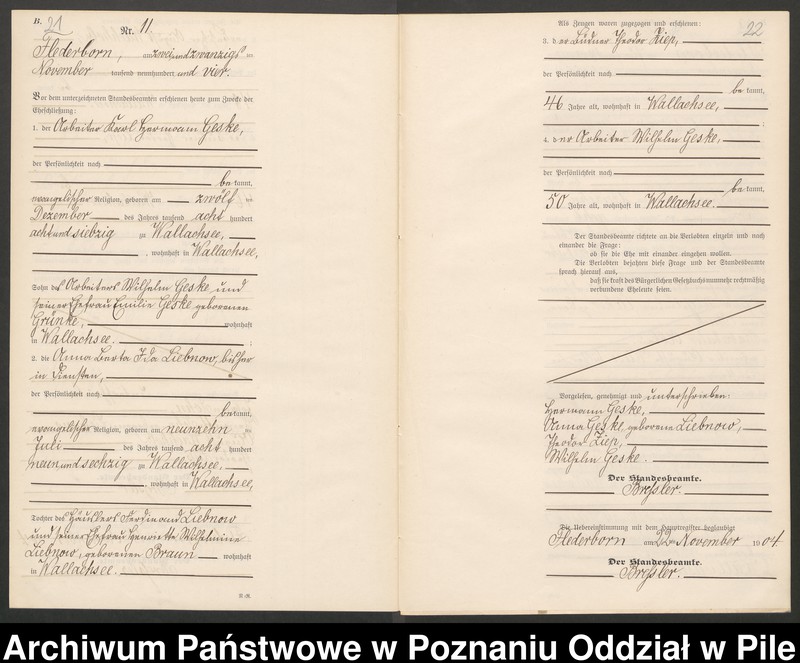 B. 21
Nr. 11
Flederborn, am zweiundzwanzigsten
November tausend neunhundert und vier.
Vor dem unterzeichneten Standesbeamten erschienen heute zum Zwecke der
Eheschließung:
1. der Arbeiter Karl Hermann Geske,
der Persönlichkeit nach
be kannt,
evangelischer Religion, geboren am zwölften
Dezember des Jahres tausend acht hundert
achtundsiebzig in Wallachsee,
, wohnhaft in Wallachsee,
Sohn des Arbeiters Wilhelm Geske und
seiner Ehefrau Emilie Geske geborenen
Grünke, wohnhaft
in Wallachsee. ;
2. die Anna Berta Ida Liebnow, bisher
in Diensten,
der Persönlichkeit nach
be kannt,
evangelischer Religion, geboren am neunzehnten
Juli des Jahres tausend acht hundert
neunundsechzig in Wallachsee,
, wohnhaft in Wallachsee,
Tochter des Häuslers Ferdinand Liebnow
und seiner Ehefrau Henriette Wilhelmine
Liebnow, geborenen Braun wohnhaft
in Wallachsee.
22
Als Zeugen waren zugezogen und erschienen:
3. der Büdner Theodor Ziep,
der Persönlichkeit nach
be kannt,
46 Jahre alt, wohnhaft in Wallachsee,
;
4. der Arbeiter Wilhelm Geske,
der Persönlichkeit nach
be kannt,
50 Jahre alt, wohnhaft in Wallachsee.
Der Standesbeamte richtete an die Verlobten einzeln und nach
einander die Frage:
ob sie die Ehe mit einander eingehen wollen.
Die Verlobten bejahten diese Frage und der Standesbeamte
sprach hierauf aus,
daß sie kraft des Bürgerlichen Gesetzbuchs nunmehr rechtmäßig
verbundene Eheleute seien.
Vorgelesen, genehmigt und unterschrieben:
Hermann Geske,
Anna Geske, geborene Liebnow,
Theodor Ziep,
Wilhelm Geske.
Der Standesbeamte.
Breßler.
Die Uebereinstimmung mit dem Hauptregister beglaubigt
Flederborn am 22ten November 1904.
Der Standesbeamte.
Breßler.
Archiwum Państwowe w Poznaniu Oddział w Pile